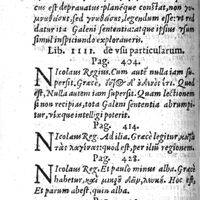 cus est deprauatus: planéque constat, non γυ-
sed legendum esse: vt red
datur ita Galeni sententia: atque ipsius vsum
simul inspiciundo explorauerit.
Lib. IIII. de vsu particularum.
Pag. 404.
Nicolaus Regius. Cum aut nulla iam su-
persit. Græcè, Quod
est, Nulla autem iam supersit. Quam lectionem
si non recipias, tota Galeni sententia abrumpi-
tur, vixque intelligi poterit.
Pag. 414.
Nicolaus Reg. Ad ilia. Græcè legitur, κατὰ
τὰς quod est, per ilium regionem.
Pag. 428.
Nicolaus Reg. Et paulò minus alba. Græcè
habetur, καὶ μικρὸ Hoc est,
Et parum abest, quin alba.